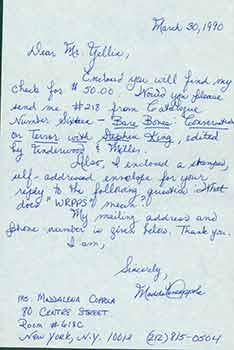 March 30, 1990
Dear Mr. Yellin,
Enclosed you will find my
check for $50.00. Would you please
send me #218 from Catalogue
Number Sixteen - Bare Bones: Conversations
on Terror with Stephen King, edited
by Underwood & Miller.
Also, I enclosed a stamped,
self-addressed envelope for your
reply to the following question: What
does "WRPPS" mean?
My mailing address and
phone number is given below. Thank you.
I am,
Sincerely,
Maddalena Coppola
MS. MADDALENA COPPOLA
80 CENTRE STREET
ROOM # 618C
NEW YORK, N.Y. 10013 (212) 815-0504